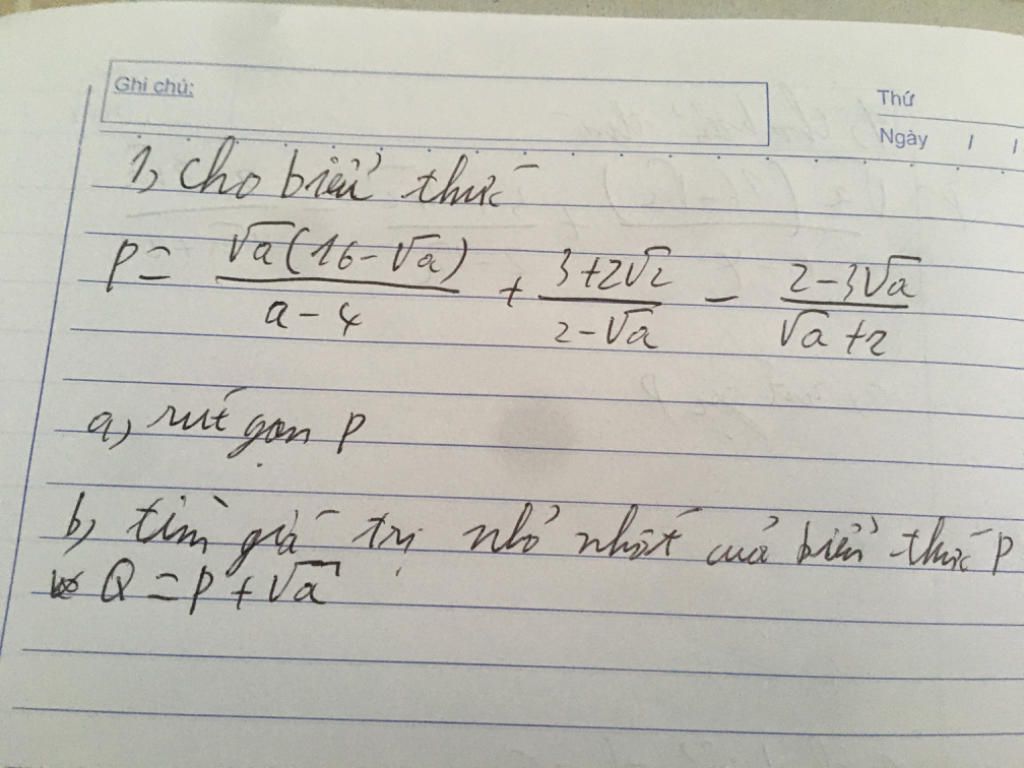 Ghi chú:
Thứ
Ngày / /
1, cho biểu thức
P = \frac{\sqrt{a}(16-\sqrt{a})}{a-4} + \frac{3+2\sqrt{2}}{2-\sqrt{a}} - \frac{2-3\sqrt{a}}{\sqrt{a}+2}
a, rút gọn P
b, tìm giá trị nhỏ nhất của biểu thức P
Q = P + \sqrt{a}